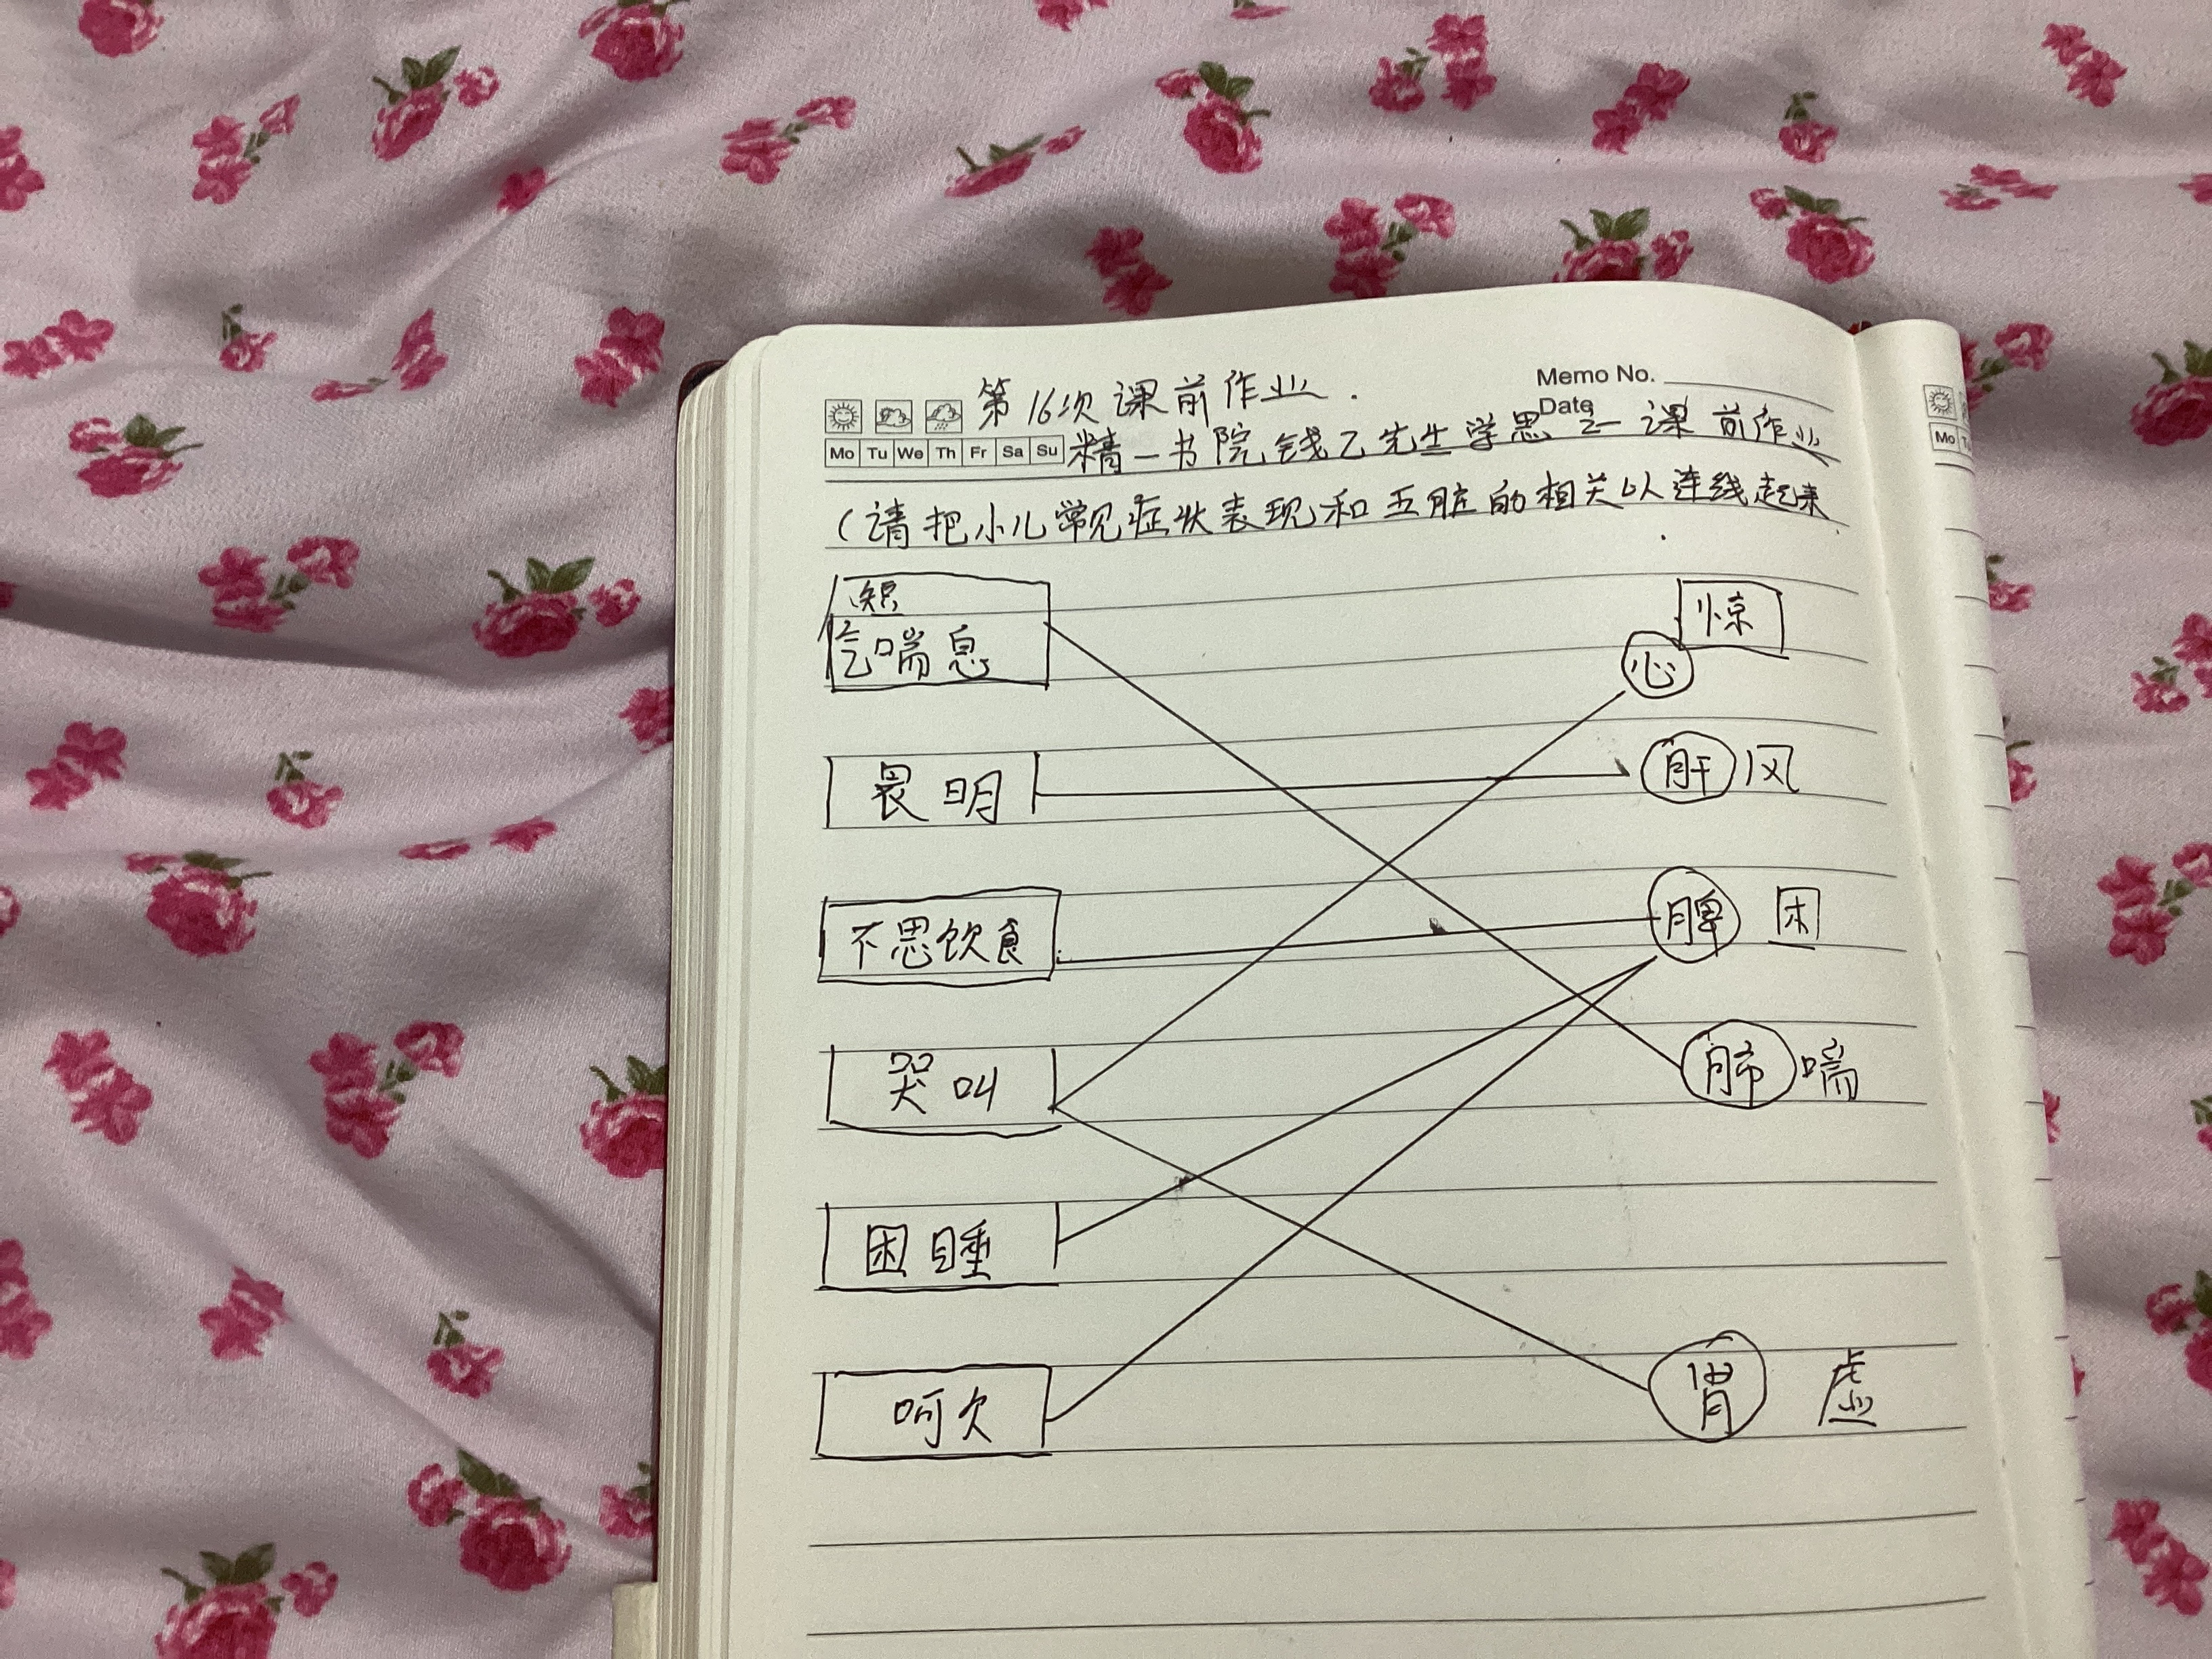 第16次课前作业.
Memo No.
Date
Mo Tu We Th Fr Sa Su
精一书院钱乙先生学思之一课前作业
(请把小儿常见症状表现和五脏的相关以连线起来.
短
气喘息
惊
心
畏明
肝 风
不思饮食
脾 困
哭叫
肺 喘
困睡
呵欠
肾 虚
Mo